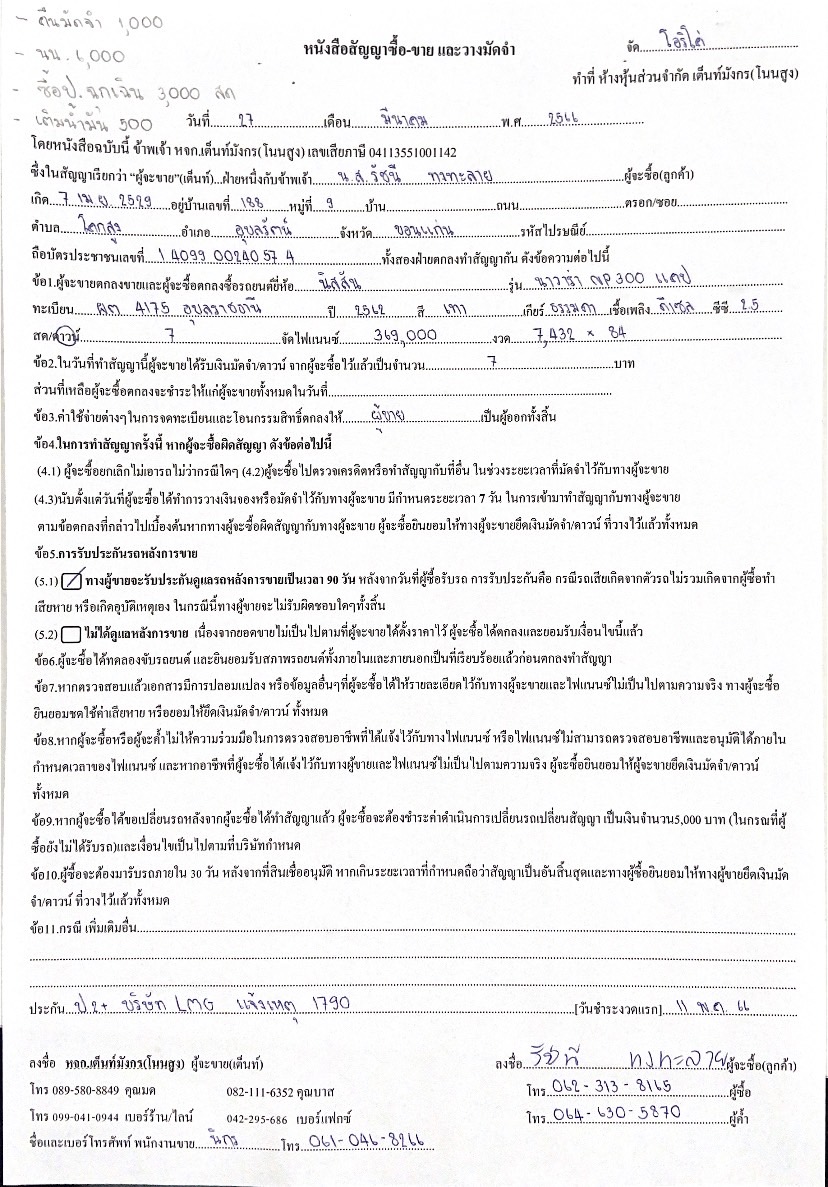 - คืนมัดจำ 1,000
- นน. 6,000
- ซื้อป.ฉุกเฉิน 3,000 สด
- เติมน้ำมัน 500
หนังสือสัญญาซื้อ-ขาย และวางมัดจำ
จัด....โอริโก่
ทำที่ ห้างหุ้นส่วนจำกัด เต็นท์มังกร(โนนสูง)
วันที่......27......เดือน......มีนาคม......พ.ศ......2566
โดยหนังสือฉบับนี้ ข้าพเจ้า หจก.เต็นท์มังกร(โนนสูง) เลขเสียภาษี 04113551001142
ซึ่งในสัญญาเรียกว่า "ผู้จะขาย"(เต็นท์)...ฝ่ายหนึ่งกับข้าพเจ้า......น.ส. รัชนี ทงทะลาย......ผู้จะซื้อ(ลูกค้า)
เกิด...7 เม.ย. 2529...อยู่บ้านเลขที่...188...หมู่ที่...9...บ้าน......ถนน......ตรอก/ซอย......
ตำบล...โคกสูง......อำเภอ...อุบลรัตน์......จังหวัด...ขอนแก่น......รหัสไปรษณีย์......
ถือบัตรประชาชนเลขที่...1 4099 00240 57 4......ทั้งสองฝ่ายตกลงทำสัญญากัน ดังข้อความต่อไปนี้
ข้อ1.ผู้จะขายตกลงขายและผู้จะซื้อตกลงซื้อรถยนต์ยี่ห้อ......นิสสัน......รุ่น...นาวาร่า NP300 แคป
ทะเบียน...ผต 4175 อุบลราชธานี......ปี...2562...สี...เทา......เกียร์...ธรรมดา...เชื้อเพลิง...ดีเซล...ซีซี...2.5
สด/ดาวน์......7......จัดไฟแนนซ์......369,000......งวด...7,432 × 84
ข้อ2.ในวันที่ทำสัญญานี้ผู้จะขายได้รับเงินมัดจำ/ดาวน์ จากผู้จะซื้อไว้แล้วเป็นจำนวน......7......บาท
ส่วนที่เหลือผู้จะซื้อตกลงจะชำระให้แก่ผู้จะขายทั้งหมดในวันที่......
ข้อ3.ค่าใช้จ่ายต่างๆในการจดทะเบียนและโอนกรรมสิทธิ์ตกลงให้......ผู้ขาย......เป็นผู้ออกทั้งสิ้น
ข้อ4.ในการทำสัญญาครั้งนี้ หากผู้จะซื้อผิดสัญญา ดังข้อต่อไปนี้
(4.1) ผู้จะซื้อยกเลิกไม่เอารถไม่ว่ากรณีใดๆ (4.2)ผู้จะซื้อไปตรวจเครดิตหรือทำสัญญากับที่อื่น ในช่วงระยะเวลาที่มัดจำไว้กับทางผู้จะขาย
(4.3)นับตั้งแต่วันที่ผู้จะซื้อได้ทำการวางเงินจองหรือมัดจำไว้กับทางผู้จะขาย มีกำหนดระยะเวลา 7 วัน ในการเข้ามาทำสัญญากับทางผู้จะขาย
ตามข้อตกลงที่กล่าวไปเบื้องต้นหากทางผู้จะซื้อผิดสัญญากับทางผู้จะขาย ผู้จะซื้อยินยอมให้ทางผู้จะขายยึดเงินมัดจำ/ดาวน์ ที่วางไว้แล้วทั้งหมด
ข้อ5.การรับประกันรถหลังการขาย
(5.1) ทางผู้ขายจะรับประกันดูแลรถหลังการขายเป็นเวลา 90 วัน หลังจากวันที่ผู้ซื้อรับรถ การรับประกันคือ กรณีรถเสียเกิดจากตัวรถไม่รวมเกิดจากผู้ซื้อทำ
เสียหาย หรือเกิดอุบัติเหตุเอง ในกรณีนี้ทางผู้ขายจะไม่รับผิดชอบใดๆทั้งสิ้น
(5.2) ไม่ได้ดูแลหลังการขาย เนื่องจากยอดขายไม่เป็นไปตามที่ผู้จะขายได้ตั้งราคาไว้ ผู้จะซื้อได้ตกลงและยอมรับเงื่อนไขนี้แล้ว
ข้อ6.ผู้จะซื้อได้ทดลองขับรถยนต์ และยินยอมรับสภาพรถยนต์ทั้งภายในและภายนอกเป็นที่เรียบร้อยแล้วก่อนตกลงทำสัญญา
ข้อ7.หากตรวจสอบแล้วเอกสารมีการปลอมแปลง หรือข้อมูลอื่นๆที่ผู้จะซื้อได้ให้รายละเอียดไว้กับทางผู้จะขายและไฟแนนซ์ไม่เป็นไปตามความจริง ทางผู้จะซื้อ
ยินยอมชดใช้ค่าเสียหาย หรือยอมให้ยึดเงินมัดจำ/ดาวน์ ทั้งหมด
ข้อ8.หากผู้จะซื้อหรือผู้จะค้ำไม่ให้ความร่วมมือในการตรวจสอบอาชีพที่ได้แจ้งไว้กับทางไฟแนนซ์ หรือไฟแนนซ์ไม่สามารถตรวจสอบอาชีพและอนุมัติได้ภายใน
กำหนดเวลาของไฟแนนซ์ และหากอาชีพที่ผู้จะซื้อได้แจ้งไว้กับทางผู้ขายและไฟแนนซ์ไม่เป็นไปตามความจริง ผู้จะซื้อยินยอมให้ผู้จะขายยึดเงินมัดจำ/ดาวน์
ทั้งหมด
ข้อ9.หากผู้จะซื้อได้ขอเปลี่ยนรถหลังจากผู้จะซื้อได้ทำสัญญาแล้ว ผู้จะซื้อจะต้องชำระค่าดำเนินการเปลี่ยนรถเปลี่ยนสัญญา เป็นเงินจำนวน5,000 บาท (ในกรณที่ผู้
ซื้อยังไม่ได้รับรถ)และเงื่อนไขเป็นไปตามที่บริษัทกำหนด
ข้อ10.ผู้ซื้อจะต้องมารับรถภายใน 30 วัน หลังจากที่สินเชื่ออนุมัติ หากเกินระยะเวลาที่กำหนดถือว่าสัญญาเป็นอันสิ้นสุดและทางผู้ซื้อยินยอมให้ทางผู้ขายยึดเงินมัด
จำ/ดาวน์ ที่วางไว้แล้วทั้งหมด
ข้อ11.กรณี เพิ่มเติมอื่น......
ประกัน...ป 2+ บริษัท LMG แจ้งเหตุ 1790......[วันชำระงวดแรก]...11 พ.ค. 66
ลงชื่อ หจก.เต็นท์มังกร(โนนสูง) ผู้จะขาย(เต็นท์)
ลงชื่อ...รัชนี ทงทะลาย...ผู้จะซื้อ(ลูกค้า)
โทร 089-580-8849 คุณมด 082-111-6352 คุณบาส
โทร...062-313-8165......ผู้ซื้อ
โทร 099-041-0944 เบอร์ร้าน/ไลน์ 042-295-686 เบอร์แฟกซ์
โทร...064-630-5870......ผู้ค้ำ
ชื่อและเบอร์โทรศัพท์ พนักงานขาย...นิกร......โทร...061-046-8266